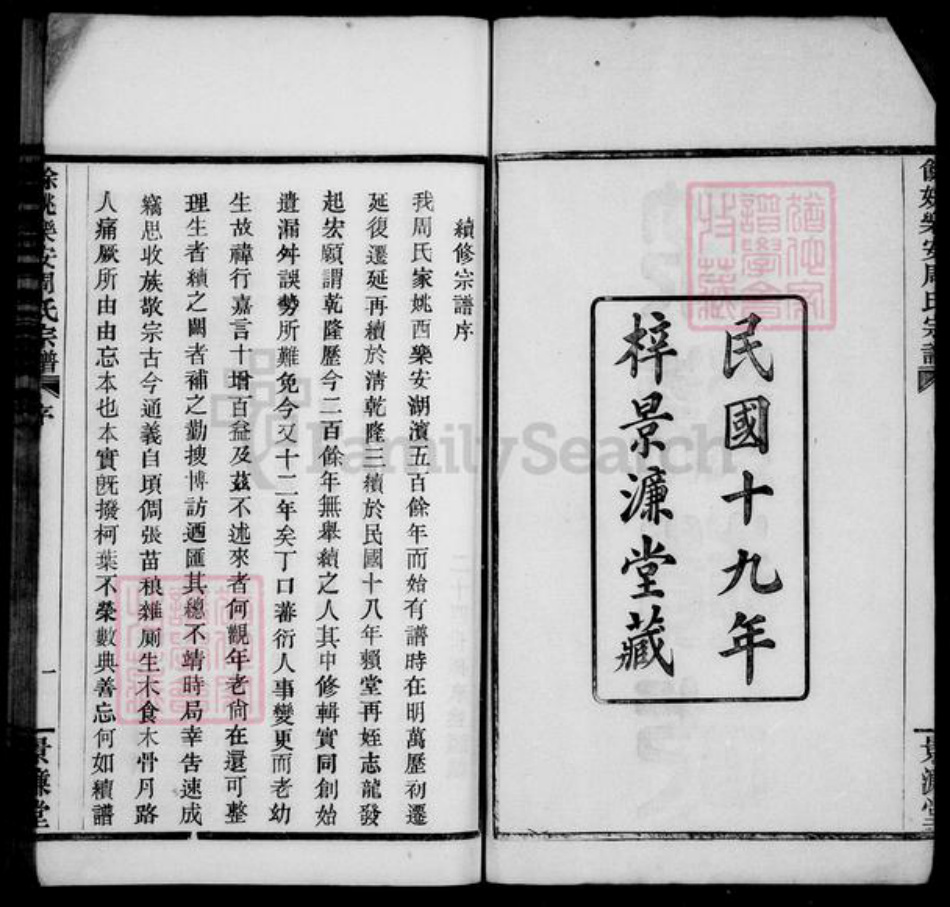 餘姚樂安周氏宗譜
景濂堂
民國十九年
梓景濂堂藏
續修宗譜序
我周氏家姚西樂安湖濱五百餘年而始有譜時在明萬歷初遷
延復遷延再續於清乾隆三續於民國十八年賴堂再姪志龍發
起宏願謂乾隆歷今二百餘年無舉續之人其中修輯實同創始
遺漏舛誤勢所難免今又十二年矣丁口蕃衍人事變更而老幼
生故禕行嘉言十增百益及茲不述來者何觀年老尙在還可整
理生者續之闕者補之勤搜博訪迺匯其總不靖時局幸告速成
竊思收族敬宗古今通義自頃倜張苗稂雜厠生木食木骨月路
人痛厥所由由忘本也本實旣撥柯葉不榮數典善忘何如續譜
餘姚樂安周氏宗譜
序
一
景濂堂
FamilySearch